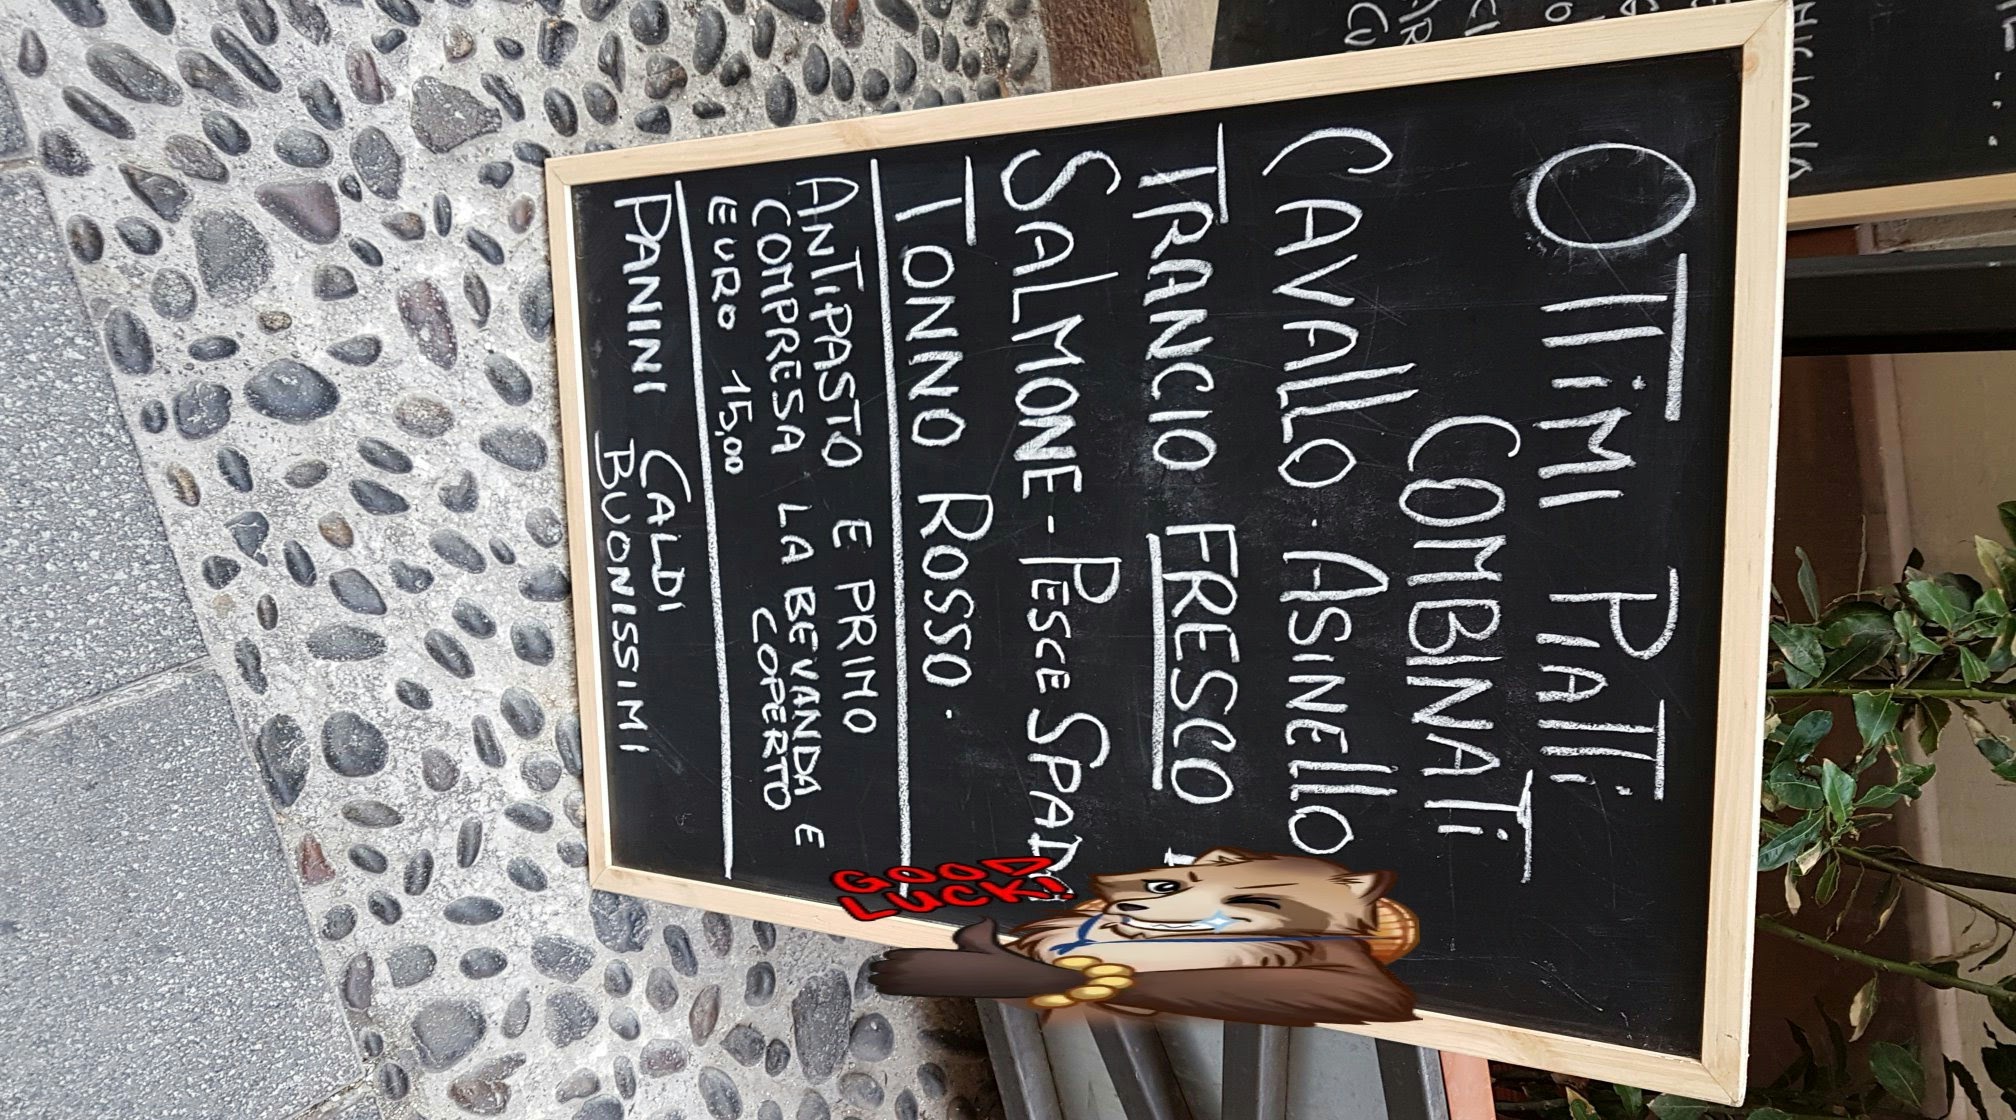 OTTIMI PIATTI
COMBINATI
CAVALLO. ASINELLO
TRANCIO FRESCO
SALMONE - PESCE SPAD
TONNO ROSSO.
ANTIPASTO E PRIMO
COMPRESA LA BEVANDA E
COPERTO
EURO 15,00
PANINI CALDI
BUONISSIMI
GOOD
LUCK!